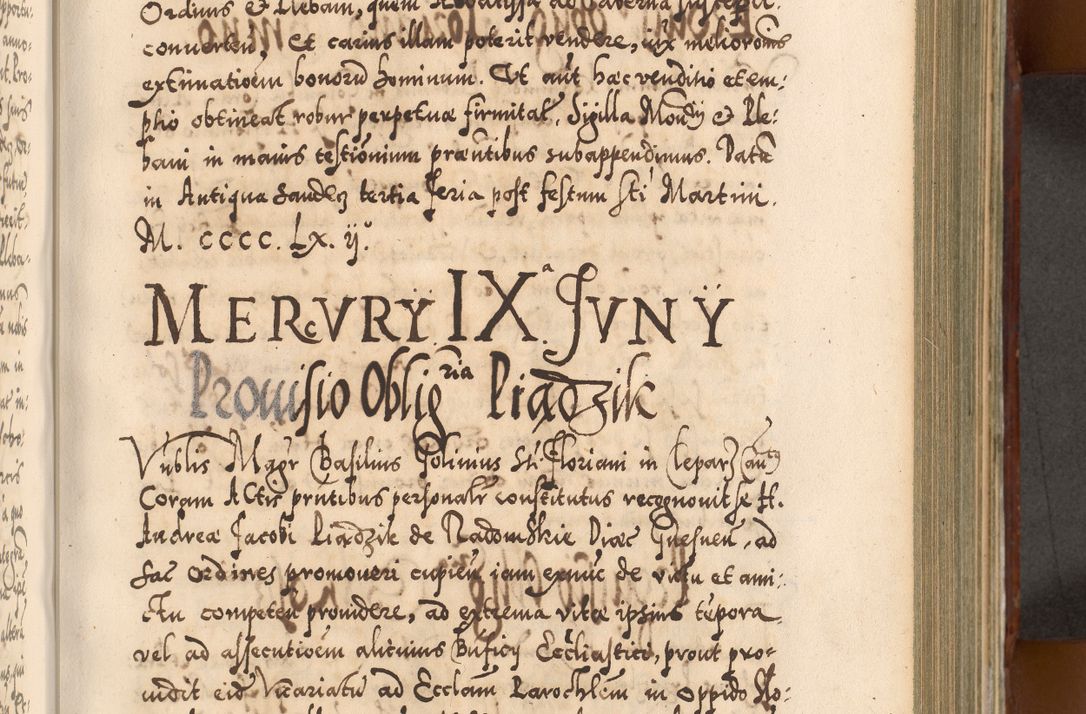 Ordinis & Plebani, quem
conuerten, Et carius illam poterit vendere, iux meliorum
extimatioem bonorū hominum. Ut aūt hæc venditio et em:
ptio obtineat robur perpetuæ firmitat, Sigilla Mon & Ple:
bani in maius testionium præntibus subappendimus. Dat
in Antiqua Sandecz tertia feria post festum Sti Martini.
M. CCCC. LX. ij.°
MERCVRŸ IX.ª JVNŸ
Prouisio Oblig.ria Piądzik
Vnblis Magr Basilius Golinius Sti Floriani in Clepar
Coram Actis pntibus personalr constitutus recognouit se H.
Andreæ Jacobi Piądzik de Radomskie Diæc Gnesnen, ad
Sac Ordines promoueri cupien iam exnūc de victu et ami:
ctu competen prouidere, ad extrema vitæ ipsius tēpora
vel ad assecutioem alicuius Bnficij Ecclīastici, prout pro=
uidit eid Vicariatu ad Ecclam Parochlem in Oppido Slo: